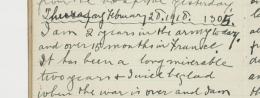 from the hospital yesterday.
Thursday February 28. 1918.
I am 2 years in the army to day
and over 15 months in France.
It has been a long miserable
two years & I will be glad
when the war is over and I am